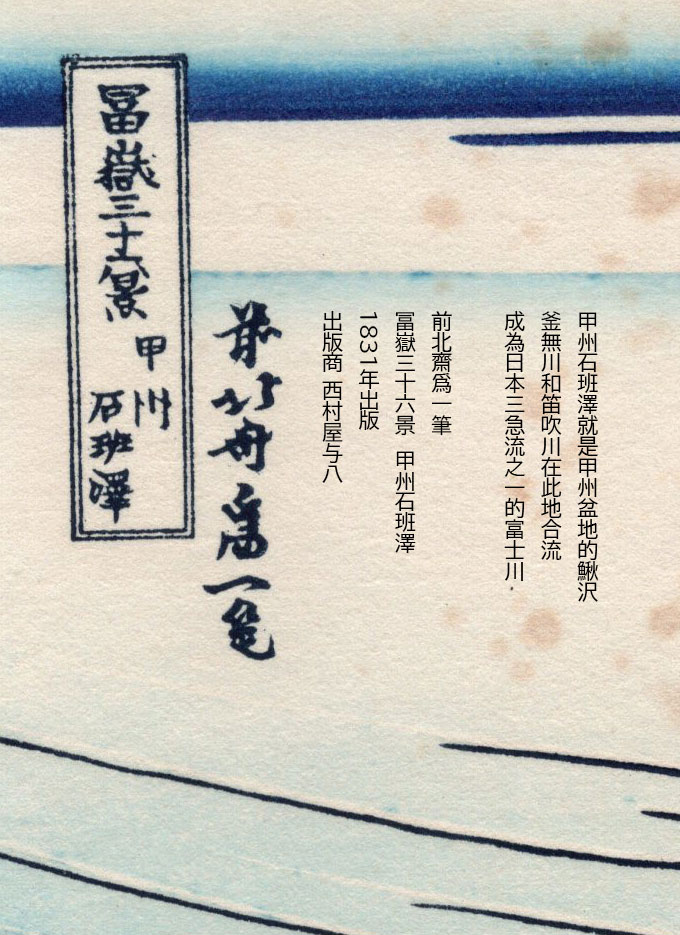 甲州石班澤就是甲州盆地的鰍沢
釜無川和笛吹川在此地合流
成為日本三急流之一的富士川.
前北齋爲一筆
冨嶽三十六景 甲州石班澤
1831年出版
出版商 西村屋与八
前北斎為一笔
冨嶽三十六景
甲州
石班澤